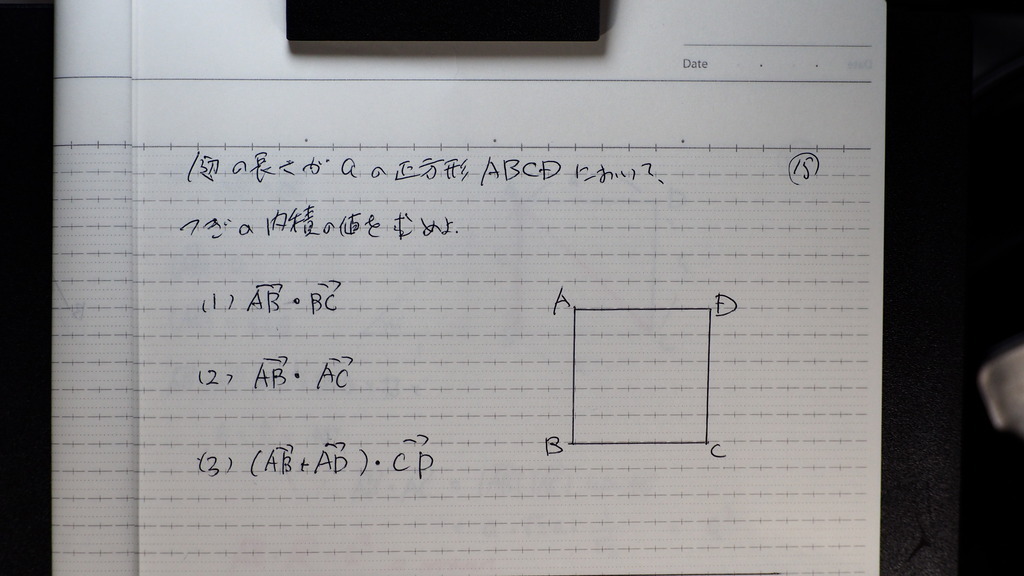 Date
1辺の長さが a の正方形 ABCD において、
⑮
つぎの内積の値を求めよ.
(1) $\overrightarrow{AB}・\overrightarrow{BC}$
(2) $\overrightarrow{AB}・\overrightarrow{AC}$
(3) $(\overrightarrow{AB}+\overrightarrow{AD})・\overrightarrow{CD}$
A
D
B
C